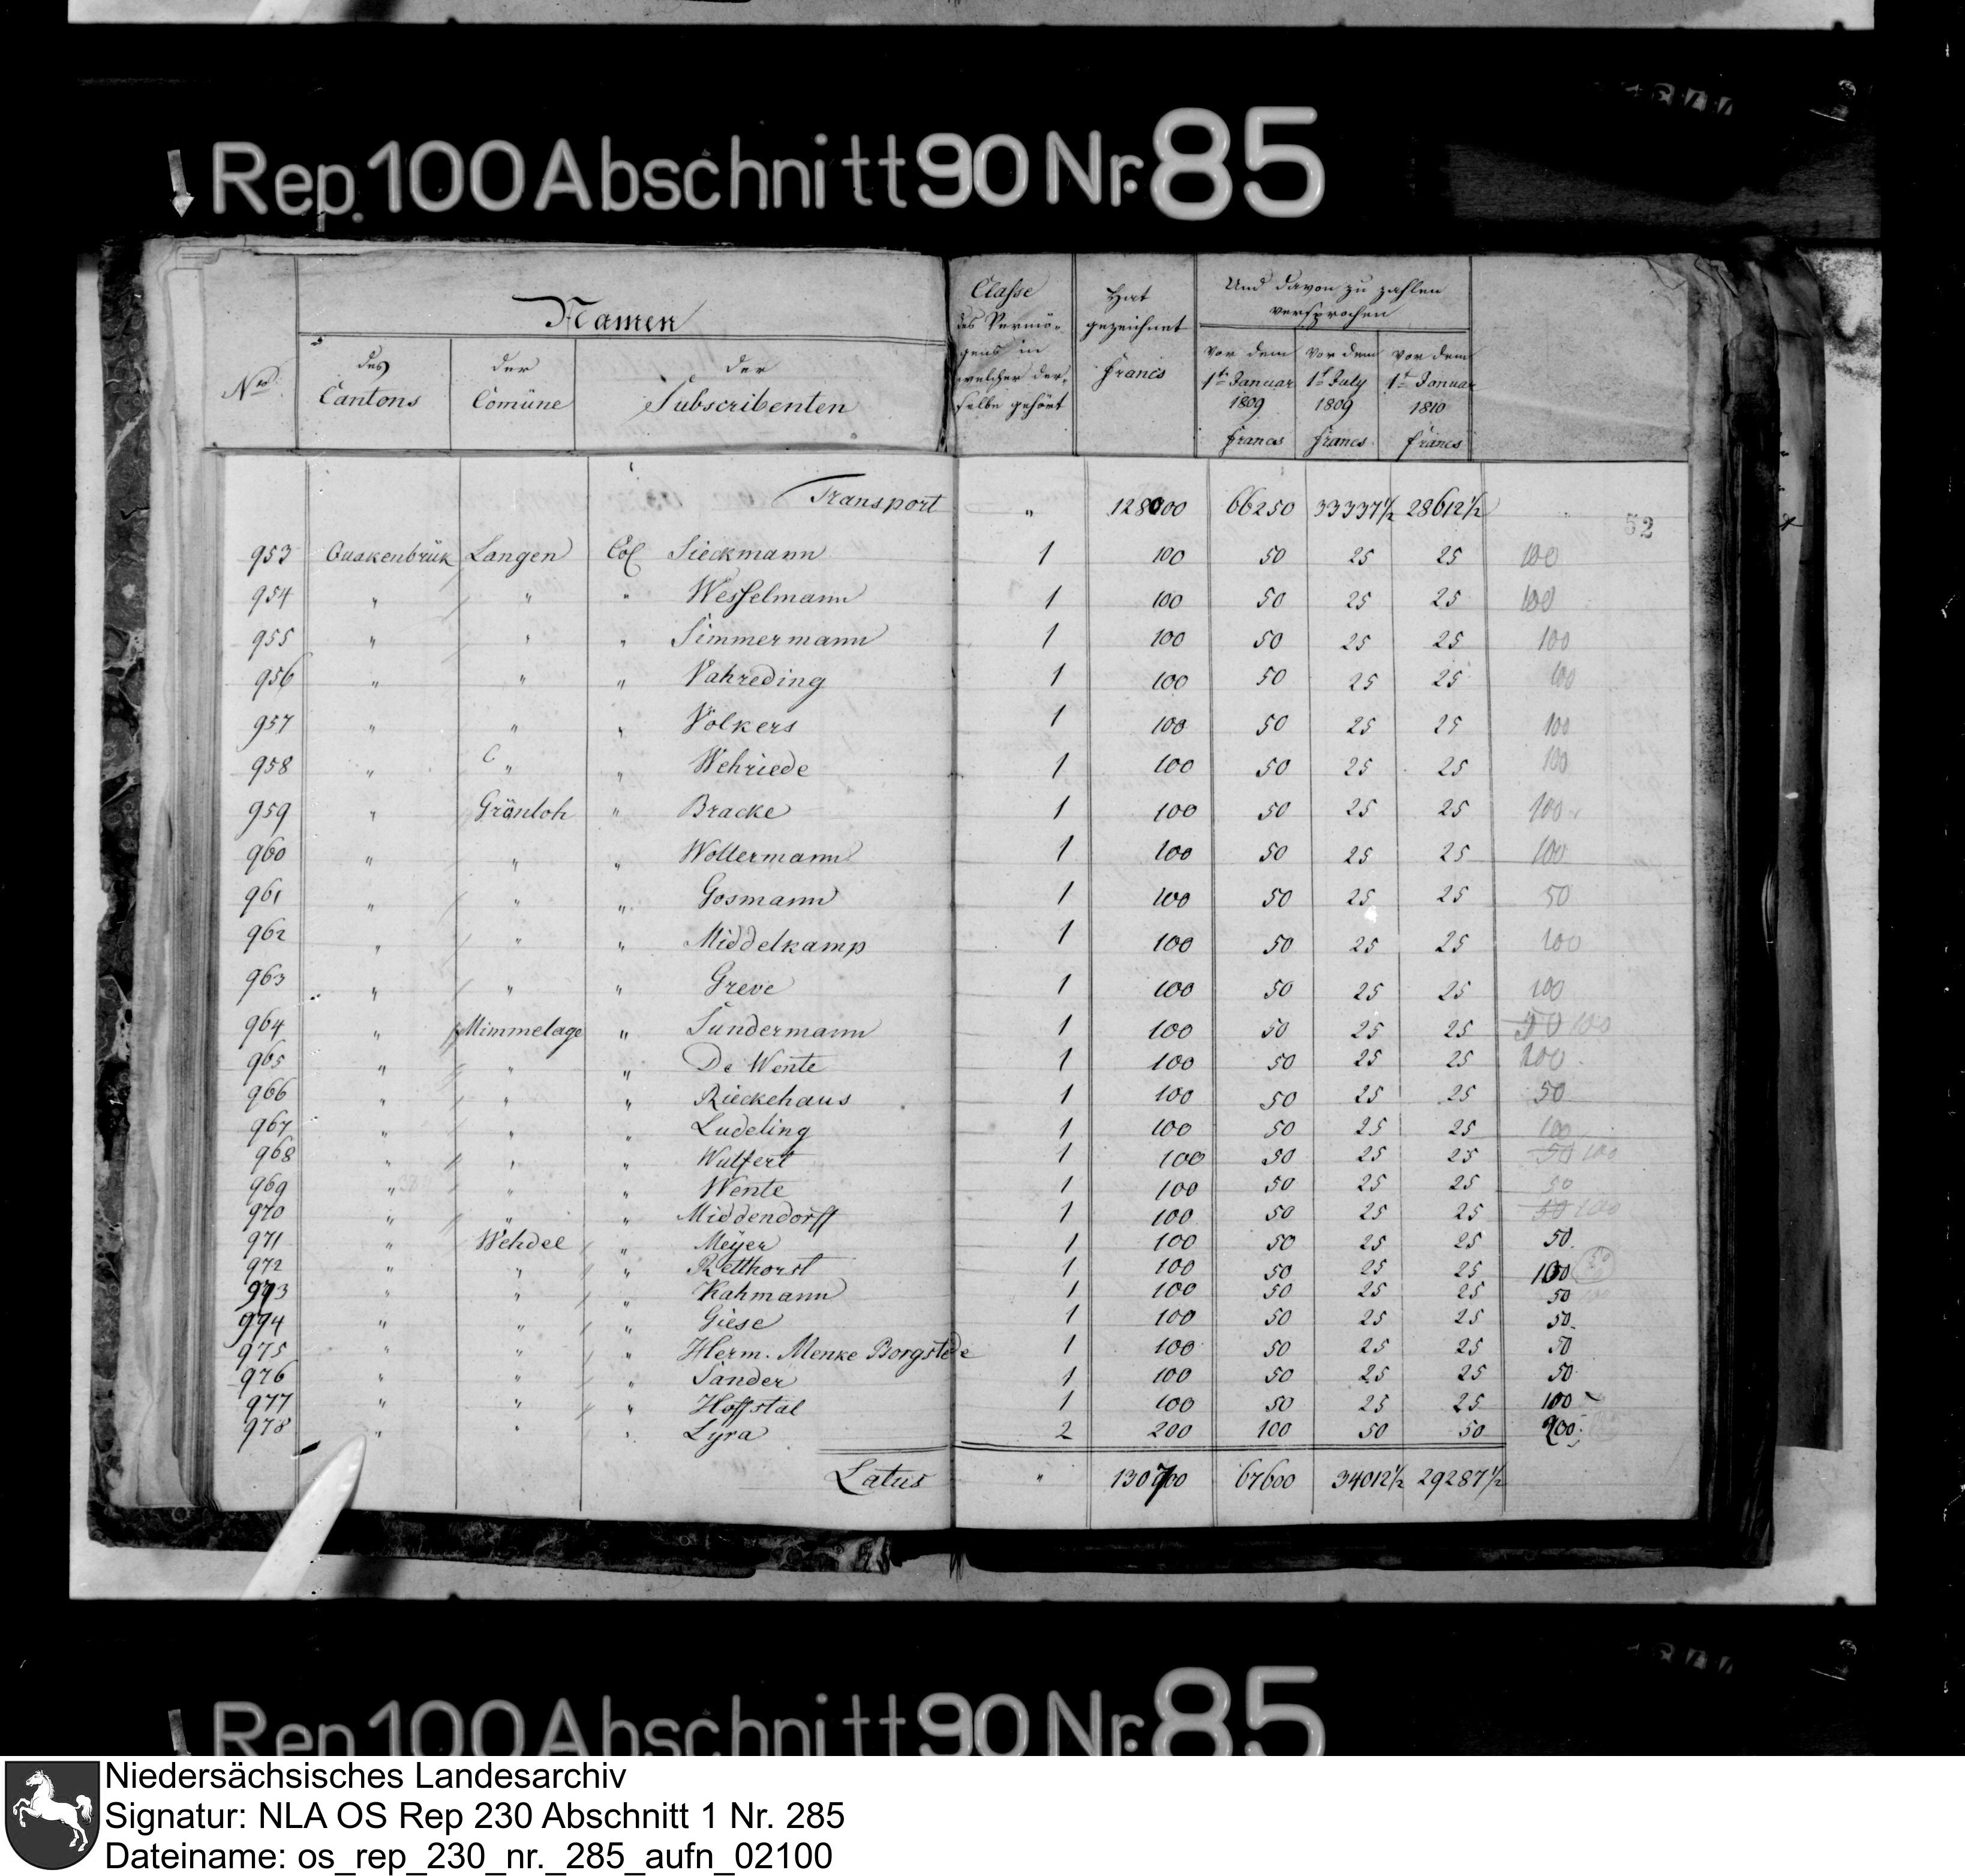 Rep. 100 Abschnitt 90 Nr. 85
Namen
Classe des Vermögens in welcher derselbe gehört
Hat gezeichnet Francs
Und davon zu zahlen versprochen
Nro.
des Cantons
der Comüne
der Subscribenten
vor dem 1ten Januar 1809 francs
vor dem 1t July 1809 francs
vor dem 1t Januar 1810 francs
Transport " 128000 66250 33337½ 28612½
52
953 Quakenbrük Langen Col Sieckmann 1 100 50 25 25 100
954 " " " Wesselmann 1 100 50 25 25 100
955 " " " Simmermann 1 100 50 25 25 100
956 " " " Vahreding 1 100 50 25 25 100
957 " " " Völkers 1 100 50 25 25 100
958 " " " Wehriede 1 100 50 25 25 100
959 " Grönloh " Bracke 1 100 50 25 25 100
960 " " " Woltermann 1 100 50 25 25 100
961 " " " Gosmann 1 100 50 25 25 50
962 " " " Middelkamp 1 100 50 25 25 100
963 " " " Greve 1 100 50 25 25 100
964 " Mimmelage " Sundermann 1 100 50 25 25 50 100
965 " " " De Wente 1 100 50 25 25 100
966 " " " Rieckehaus 1 100 50 25 25 50
967 " " " Ludeling 1 100 50 25 25 100
968 " " " Wulfert 1 100 50 25 25 50 100
969 " " " Wente 1 100 50 25 25 50
970 " " " Middendorff 1 100 50 25 25 50 100
971 " Wehdel " Meÿer 1 100 50 25 25 50
972 " " " Retthorst 1 100 50 25 25 100 50
973 " " " Kahmann 1 100 50 25 25 50
974 " " " Giese 1 100 50 25 25 50
975 " " " Herm. Menke Borgstede 1 100 50 25 25 50
976 " " " Sander 1 100 50 25 25 50
977 " " " Hoffstal 1 100 50 25 25 100
978 " " " Lyra 2 200 100 50 50 200
Latus " 130700 67600 34012½ 29287½
Rep. 100 Abschnitt 90 Nr. 85
Niedersächsisches Landesarchiv
Signatur: NLA OS Rep 230 Abschnitt 1 Nr. 285
Dateiname: os_rep_230_nr._285_aufn_02100